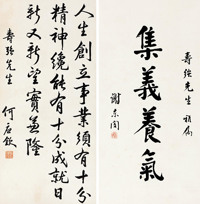 壽強先生
集義養氣
謝東閔
人生創立事業須有十分
精神纔能有十分成就日
新又新望實兼隆
壽強先生
何應欽